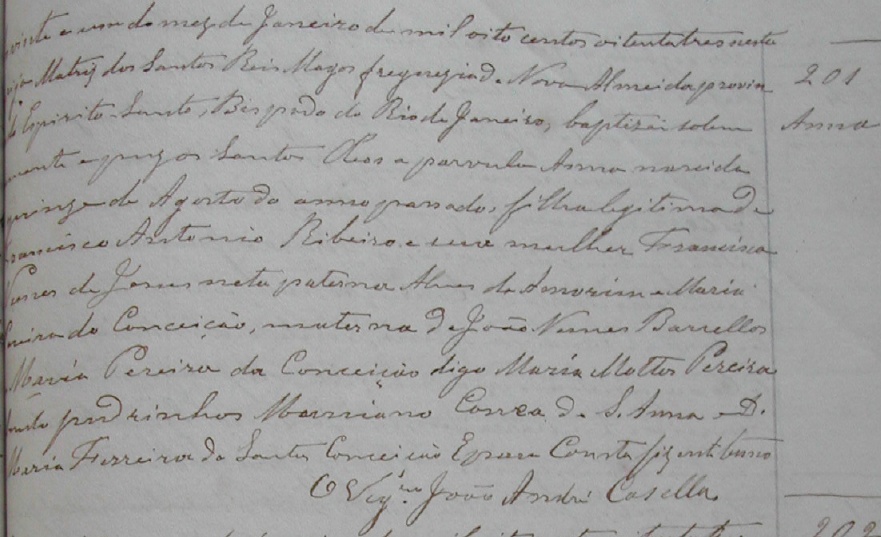 vinte e um do mez de Janeiro de mil oito centos oitenta tres nesta
Matriz dos Santos Reis Magos freguegia d. Nova Almeida provin
201
do Espirito-Santo, Bispado do Rio de Janeiro, baptizei solem
Anna
mente e puz os Santos Oleos a parvula Anna nascida
quinze de Agosto do anno passado, filha legitima de
Francisco Antonio Ribeiro e sua mulher Francisca
Nunes de Jesus neta paterna Alves de Amorim e Maria
da Conceição, materna de João Nunes Barcellos
Maria Pereira da Conceição digo Maria Mottos Pereira
padrinhos Marciano Correa de S. Anna e D.
Maria Ferreira da Santa Conceição E para Constar fiz este termo
O Vigr.º João André Casella
202